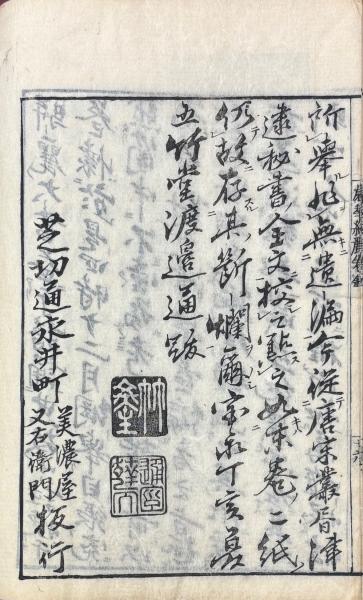 所舉非無遺漏今從唐宋叢書津
逮秘書全文挍之點之如末卷二紙
仍故存其斷爛爾宝永丁亥夏
五竹堂渡邉通跋
竹堂
芝切通永井町
美濃屋
又右衛門
板行